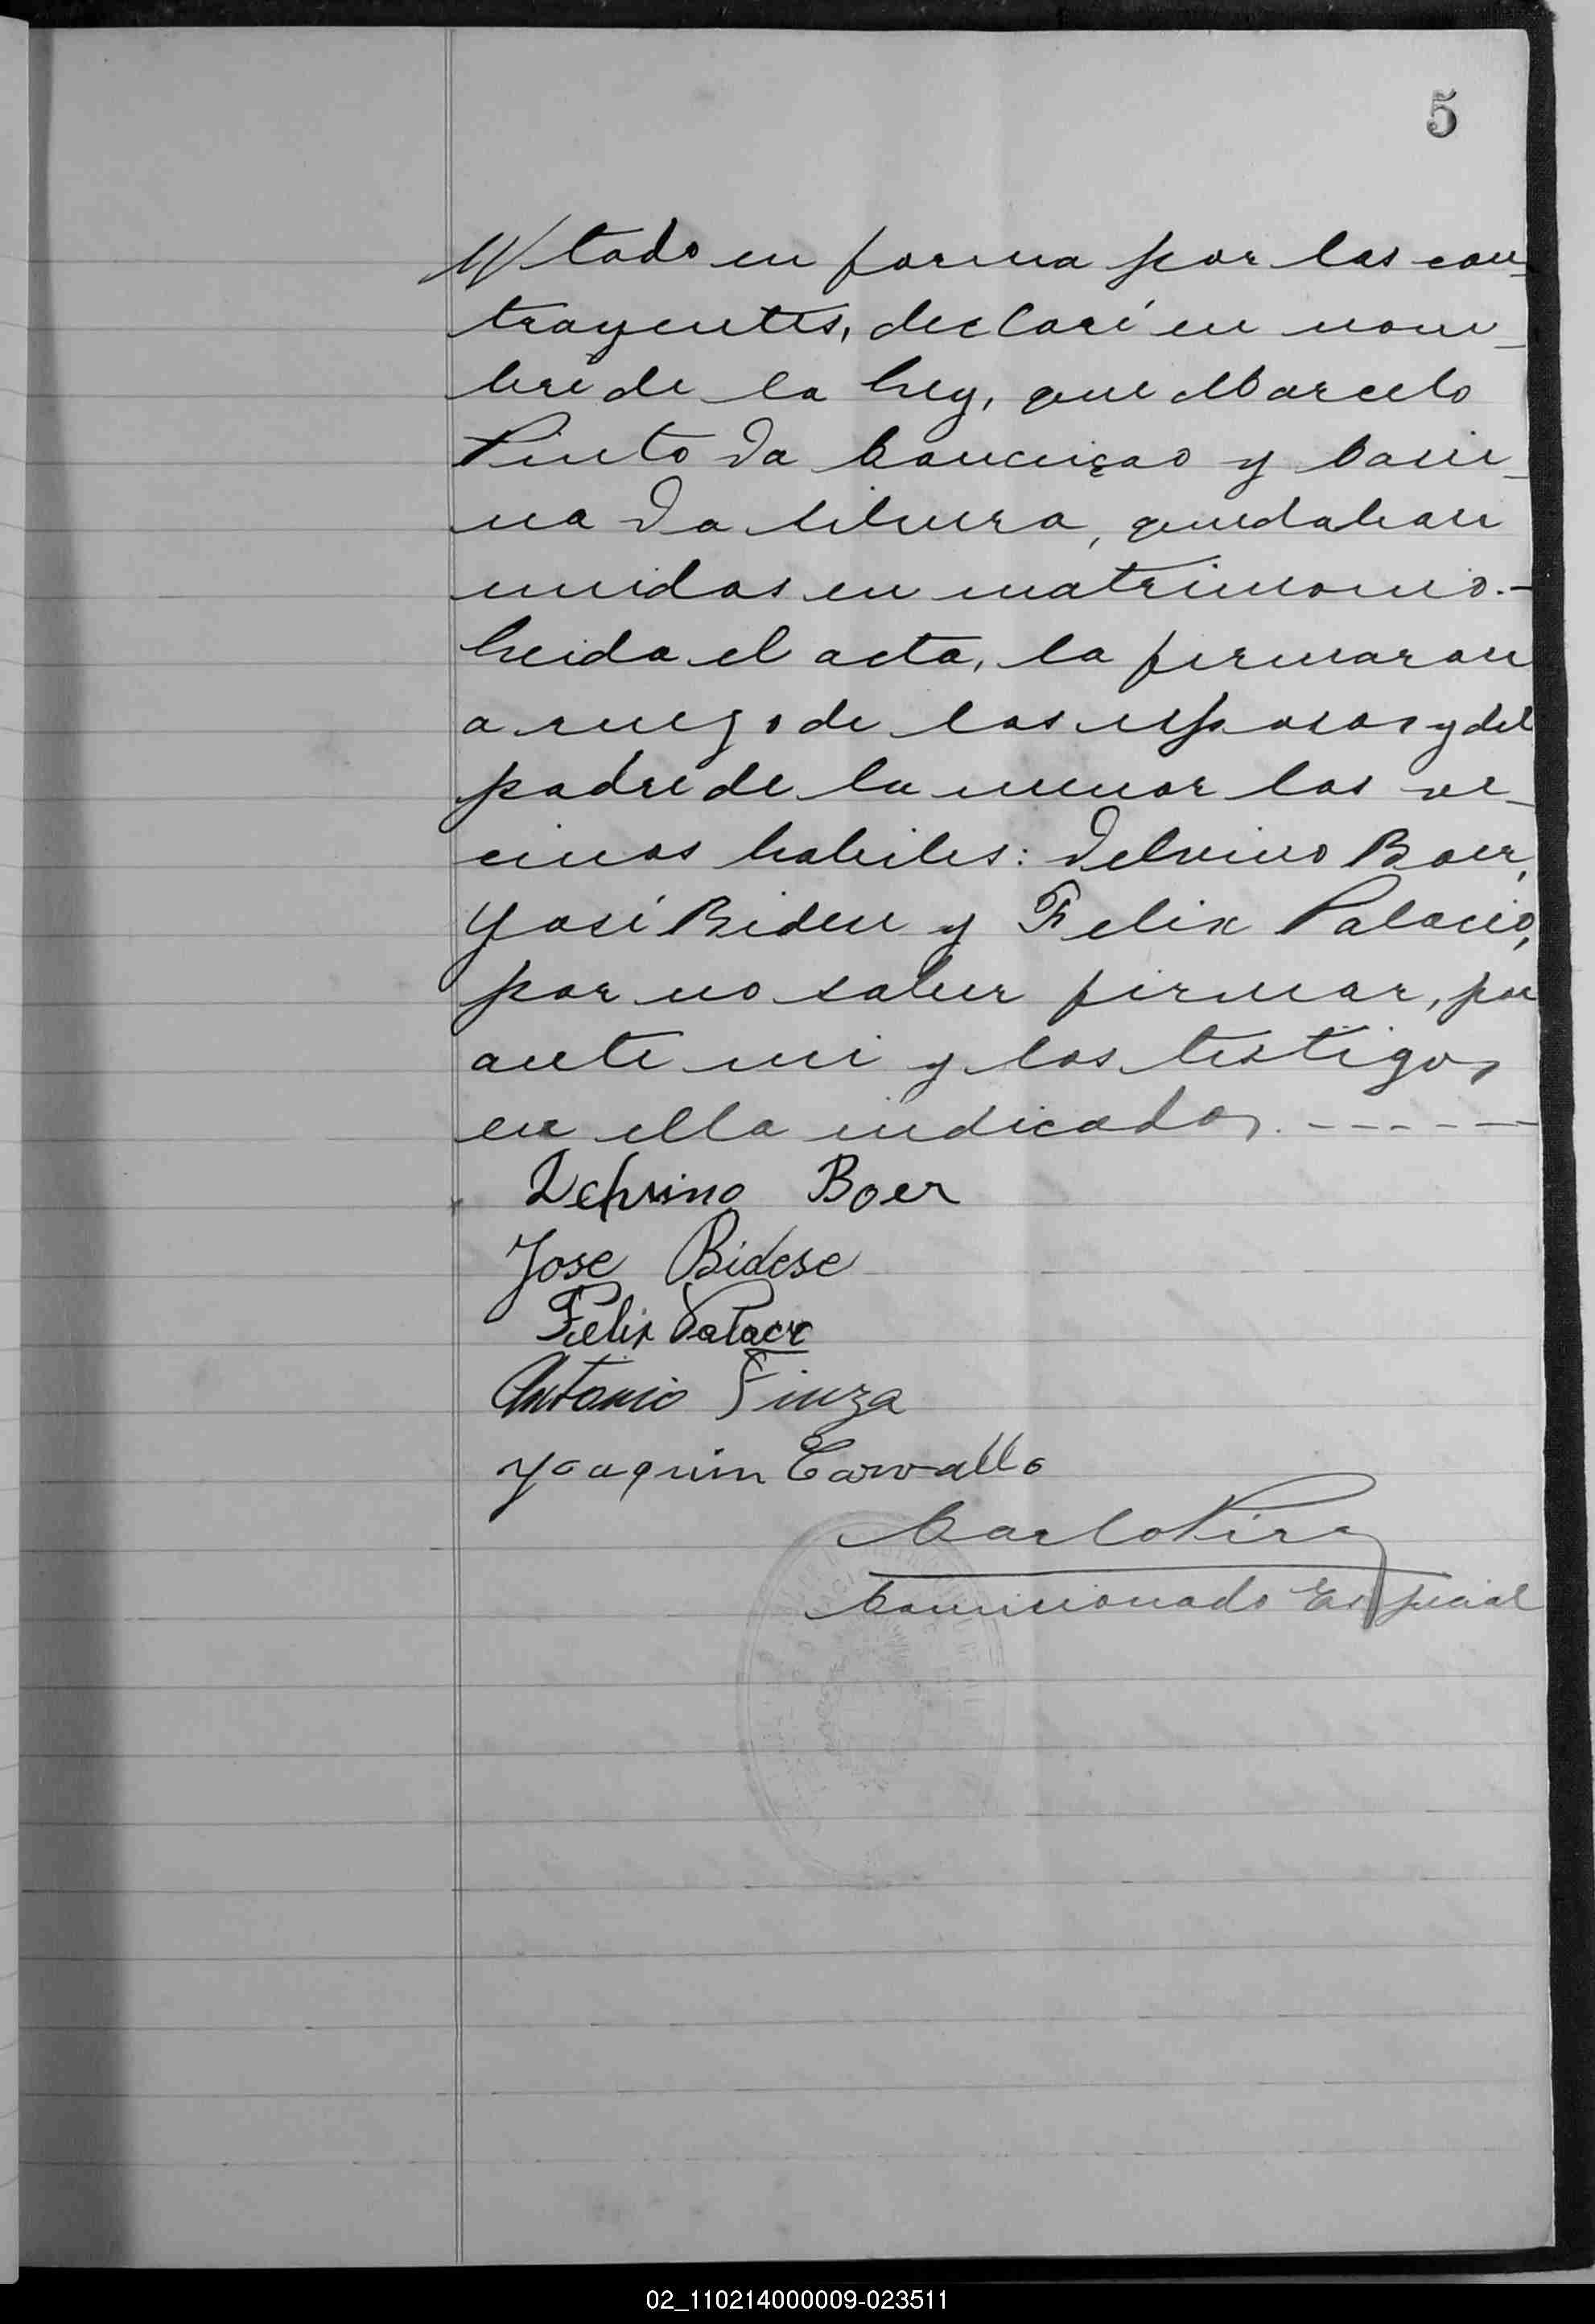 5
tado en forma por los con-
trayentes, declaré en nom-
bre de la Ley, que Marcelo
Pinto da Conceiçao y
na da Silvera, quedaban
unidos en matrimonio.-
Leida el acta, la firmaron
a ruego de los esposos y del
padre de la menor los ve-
cinos habiles: Delvino Boer,
José Bidese y Felix Palacio,
por no saber firmar, por
ante mi y los testigos
en ella indicados. - - - - -
Delvino Boer
Jose Bidese
Felix
Antonio Fiuza
Joaquim Carvallo
Comisionado Especial
02_110214000009-023511